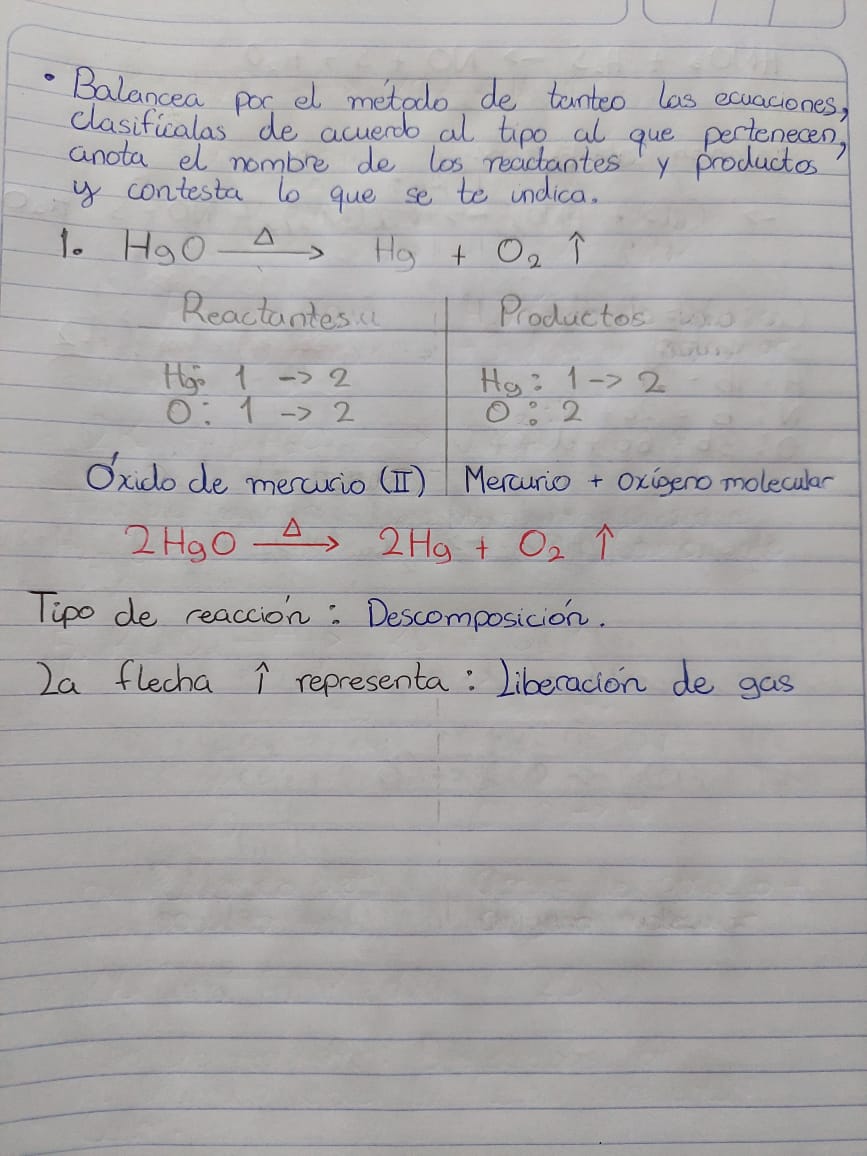 • Balancea por el método de tanteo las ecuaciones,
clasifícalas de acuerdo al tipo al que pertenecen,
anota el nombre de los reactantes y productos
y contesta lo que se te indica.
1. HgO —Δ→ Hg + O₂ ↑
Reactantes Productos
Hg: 1 -> 2 Hg: 1 -> 2
O: 1 -> 2 O: 2
Óxido de mercurio (II) Mercurio + oxígeno molecular
2HgO —Δ→ 2Hg + O₂ ↑
Tipo de reacción: Descomposición.
La flecha ↑ representa: Liberación de gas